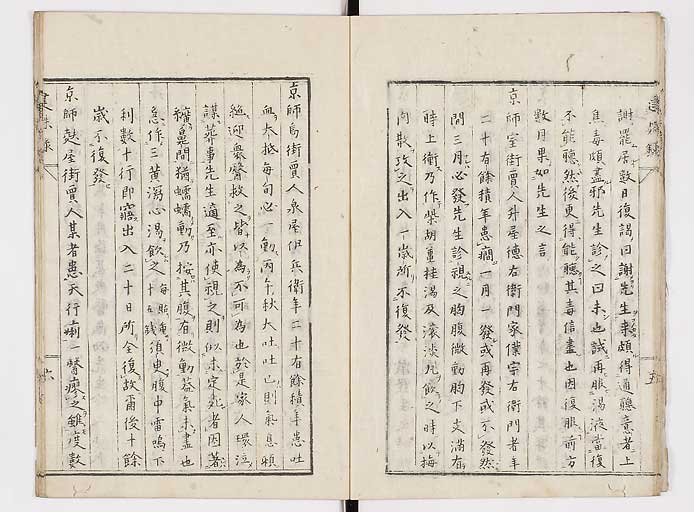 謝罷居數日復謁曰謝先生来頗得通聽意者上
焦毒頗盡邪先生診之曰未也試再服湯液當復
不能聽然後更得能聽其毒信盡也因復服前方
數月果如先生之言
京師室街賈人升屋德右衛門家僕宗右衛門者年
二十有餘積年患癇一月一發或再發或不發然
間三月必發先生診視之胸腹微動胸下支滿有
時上衝乃作柴胡薑桂湯及滚淡丸飲之時以梅
肉散攻之出入一歳所不復發
京師烏街賈人泉屋伊兵衛年二十有餘積年患吐
血大抵每旬必一動丙午秋大吐吐已則氣息頓
絶迎衆醫救之皆以為不可為也於是家人環泣
謀葬事先生適至亦使視之則似未定死者因著
纊鼻間猶蠕蠕動乃按其腹有微動蓋氣未盡也
急作三黄瀉心湯飲之每貼重十五錢須臾腹中雷鳴下
利數十行即寤出入二十日所全復故爾後十餘
歳不復發
京師麩屋街賈人某者患天行痢一醫療之雖度數
五
六